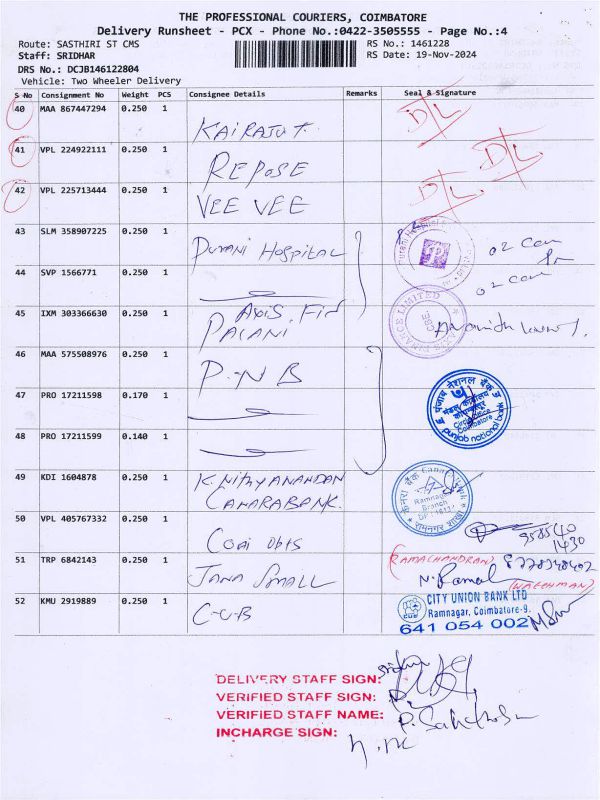 THE PROFESSIONAL COURIERS, COIMBATORE
Delivery Runsheet - PCX - Phone No.:0422-3505555 - Page No.:4
Route: SASTHIRI ST CMS
RS No.: 1461228
Staff: SRIDHAR
RS Date: 19-Nov-2024
DRS No.: DCJB146122804
Vehicle: Two Wheeler Delivery
S No Consignment No Weight PCS Consignee Details Remarks Seal & Signature
40 MAA 867447294 0.250 1 KAIRAJU T. D/L
41 VPL 224922111 0.250 1 REPOSE D/L
42 VPL 225713444 0.250 1 VEE VEE D/L
43 SLM 358907225 0.250 1 PURANI HOSPITAL
44 SVP 1566771 0.250 1
45 IXM 303366630 0.250 1 AXIS. FIN
PALANI
46 MAA 575508976 0.250 1 P-N B
47 PRO 17211598 0.170 1
48 PRO 17211599 0.140 1
पंजाब नैशनल बैंक
punjab national bank
49 KDI 1604878 0.250 1 K. NITHYANANDAN
CANARA BANK.
केनरा बैंक Canara Bank
Ramnagar
Branch
रामनगर शाखा
50 VPL 405767332 0.250 1
51 TRP 6842143 0.250 1 JANA SMALL
(RAMACHANDRAN)
52 KMU 2919889 0.250 1 C-U-B
CITY UNION BANK LTD
Ramnagar, Coimbatore-9.
641 054 002
DELIVERY STAFF SIGN:
VERIFIED STAFF SIGN:
VERIFIED STAFF NAME:
INCHARGE SIGN: